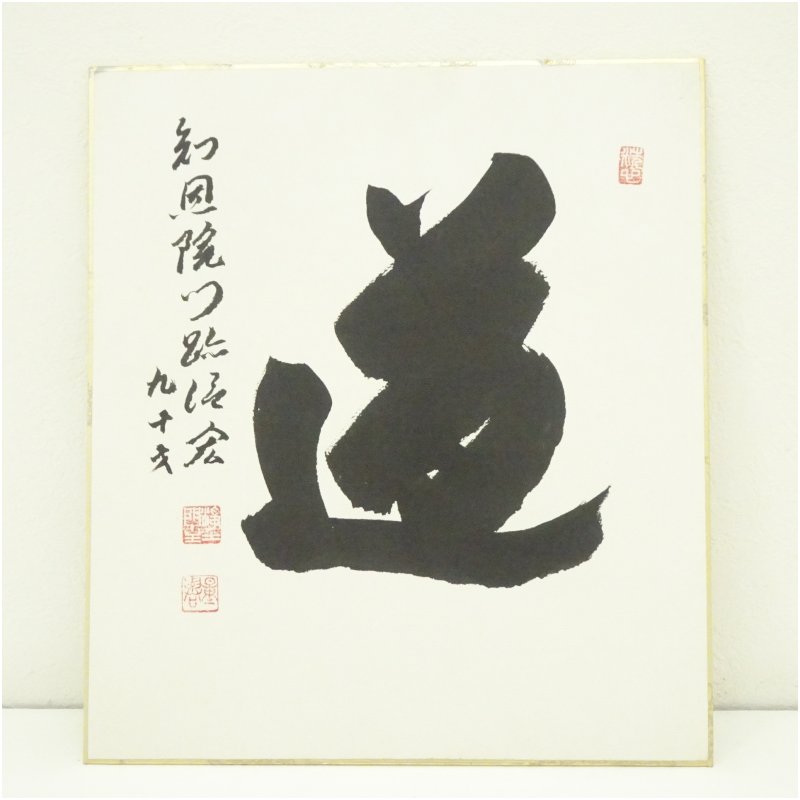 道
知恩院門跡信宏
九十才